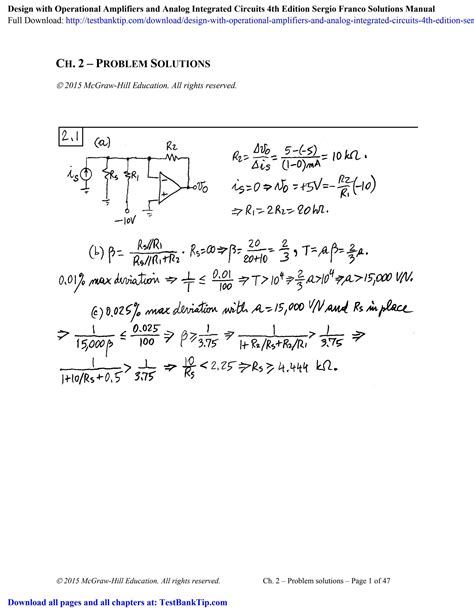 Design with Operational Amplifiers and Analog Integrated Circuits 4th Edition Sergio Franco Solutions Manual
Full Download: http://testbanktip.com/download/design-with-operational-amplifiers-and-analog-integrated-circuits-4th-edition-ser
CH. 2 – PROBLEM SOLUTIONS
© 2015 McGraw-Hill Education. All rights reserved.
2.1 (a)
R2
is Rs R1 vo
-10V
R2 = Δvo/Δis = 5-(-5)/(1-0)mA = 10 kΩ.
is=0 ⇒ vo = +5V = -R2/R1(-10)
⇒ R1 = 2R2 = 20 kΩ.
(b) β = Rs//R1/Rs//R1+R2 . Rs=∞ ⇒ β = 20/20+10 = 2/3, T = aβ = 2/3 a.
0.01% max deviation ⇒ 1/T ≤ 0.01/100 ⇒ T > 10⁴ ⇒ 2/3 a > 10⁴ ⇒ a > 15,000 V/V.
(c) 0.025% max deviation with a = 15,000 V/V and Rs in place
⇒ 1/15,000β ≤ 0.025/100 ⇒ β ≥ 1/3.75 ⇒ 1/1+R2/Rs+R2/R1 > 1/3.75 ⇒
1/1+10/Rs+0.5 > 1/3.75 ⇒ 10/Rs < 2.25 ⇒ Rs ≥ 4.444 kΩ.
© 2015 McGraw-Hill Education. All rights reserved. Ch. 2 – Problem solutions – Page 1 of 47
Download all pages and all chapters at: TestBankTip.com